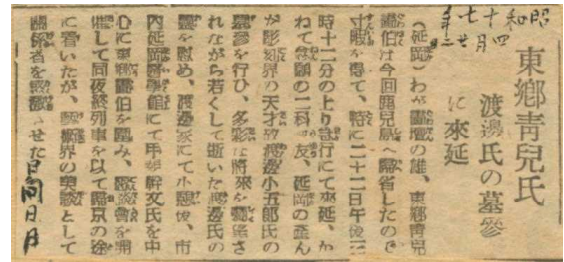 昭和十七年
四月廿二
東鄉靑兒氏
渡邊氏の墓參
に來延
(延岡)わが畫壇の雄、東鄉靑兒
畫伯は今回鹿兒島へ歸省したので
寸暇を得て、特に二十二日午後三
時十二分の上り急行にて來延、か
ねて念願の二科の友、延岡の歪ん
だ彫刻界の天才故渡邊小五郎氏の
墓參を行ひ、多彩な將來を囑望さ
れながら若くして逝いた渡邊氏の
靈を慰め、渡邊家にて小憩後、市
內延岡醫事館にて甲斐幹文氏を中
心に東鄉畫伯を圍み、座談會を開
催して同夜終列車を以て歸京の途
に着いたが、藝術界の美談として
關係者を感激させた
日向日日